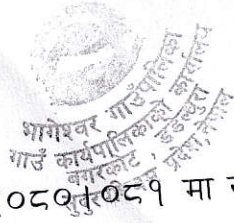 भागेश्वर गाउँपालिका
गाउँ कार्यपालिकाको कार्यालय
बगरकोट, डडेल्धुरा
सुदूरपश्चिम प्रदेश, नेपाल
०८०।०८१ मा